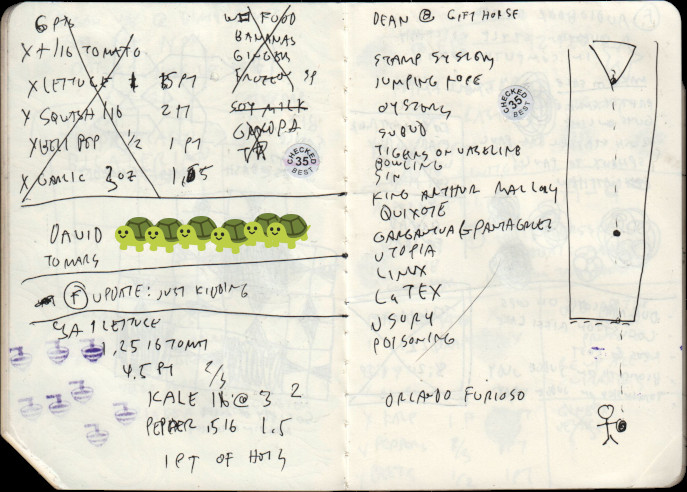 6 PK
X + /16 TOMATO
X LETTUCE 1 15 PT
X SQUASH 1/6 2 PT
X BELL PEP 1/2 1 PT
X GARLIC 3 OZ 1.85
FOOD
BANANAS
GINGER
SOY MILK
GRANDPA
CHECKED 35 BEST
DAVID
TO MARS
F UPDATE: JUST KIDDING
1 LETTUCE
1.25 16 TOMT
4.5 PT 2/3
KALE 1 16 @ 3 2
PEPPER .5 16 1.5
1 PT OF HOTS
DEAN @ GIFT HORSE
STAMP SYSTEM
JUMPING ROPE
OYSTERS
SUDUD
CHECKED 35 BEST
TIGERS
BOWLING
SIN
KING ARTHUR MALLORY
QUIXOTE
GARGANTUA & PANTAGRUEL
UTOPIA
LINUX
LATEX
USURY
POISONING
ORLANDO FURIOSO